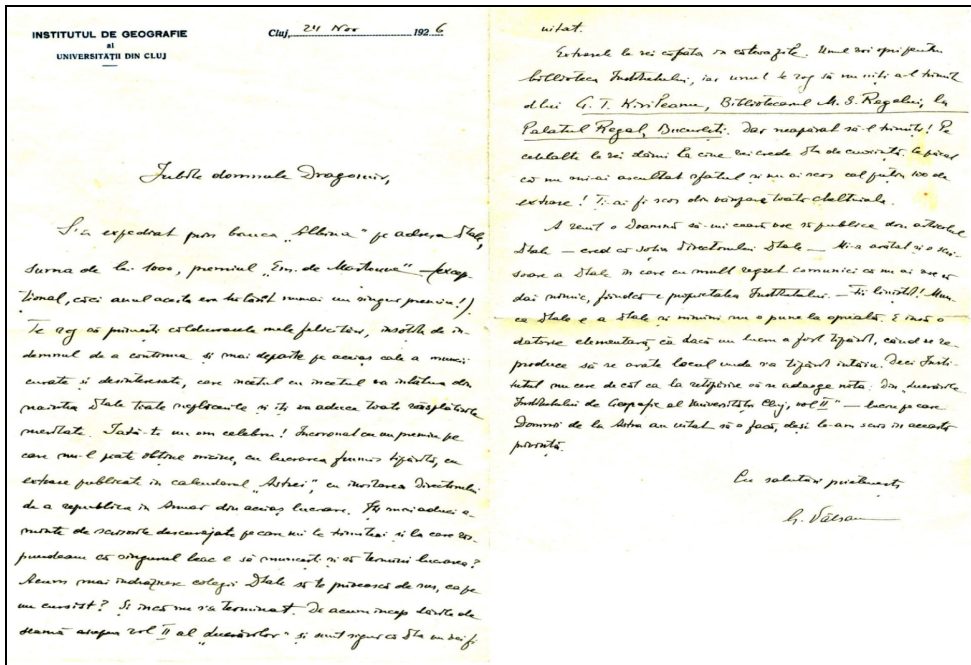 INSTITUTUL DE GEOGRAFIE
al
UNIVERSITĂȚII DIN CLUJ
Cluj, 24 Nov 1926
Iubite domnule Dragomir,
S'a expediat prin banca „Albina” pe adresa Dtale,
suma de lei 1000, premiul „Em. de Martonne” – (excep-
țional, căci anul acesta era hotărît numai un singur premiu!)
Te rog să primești călduroasele mele felicitări, însoțite de în-
demnul de a continua și mai departe pe aceiaș cale a muncii
curate și desinteresate, care încetul cu încetul va înlătura din
naintea Dtale toate neplăcerile și îți va aduce toate răsplătirile
meritate. Iată-te un om celebru! Încoronat cu un premiu pe
care nu-l poate obține oricine, cu lucrarea frumos tipărită, cu
extrase publicate în calendarul „Astrei”, cu invitarea Directorului
de a republica în din aceiaș lucrare. Îți mai aduci a-
minte de scrisorile descurajate pe cari mi le trimiteai și la care răs-
pundeam că singurul leac e să muncești și să termini lucrarea?
Acum mai îndrăznesc colegii Dtale să te privească de sus, ca pe
un cursist? Și încă nu s'a terminat. De acum încep dările de
seamă asupra vol II al „Lucrărilor” și sunt sigur că Dta nu vei fi
uitat.
Extrasele le vei căpăta în câteva zile. Unul vei opri pentru
biblioteca Institutului, iar unul te rog să nu uiți a-l trimite
dlui G. T. Kirileanu, Bibliotecarul M. S. Regelui, la
Palatul Regal, București. Dar neapărat să-l trimiți! Pe
celelalte le vei dărui la cine vei crede Dta de cuviință. Ce păcat
că nu mi-ai ascultat sfatul și nu ai scos cel puțin 100 de
extrase! Ți-ai fi scos din vânzare toate cheltuielile.
A venit o Doamnă să-mi ceară voe să publice din articolul
Dtale – cred că soția directorului Dtale – Mi-a arătat și o scri-
soare a Dtale în care cu mult regret comunici că nu ai voe să
dai nimic, fiindcă e proprietatea Institutului. – Fii liniștit! Mun-
ca Dtale e a Dtale și nimeni nu o pune la opreală. E însă o
datorie elementară, ca dacă un lucru a fost tipărit, când se re-
produce să se arate locul unde s'a tipărit întâiu. Deci Insti-
tutul nu cere de cât ca la retipărire să se adaoge nota: „Din Lucrările
Institutului de Geografie al Universității Cluj, vol II” – lucru pe care
Domnii de la Astra au uitat să-o facă, deși le-am scris în această
privință.
Cu salutări prietenești
G. Vâlsan